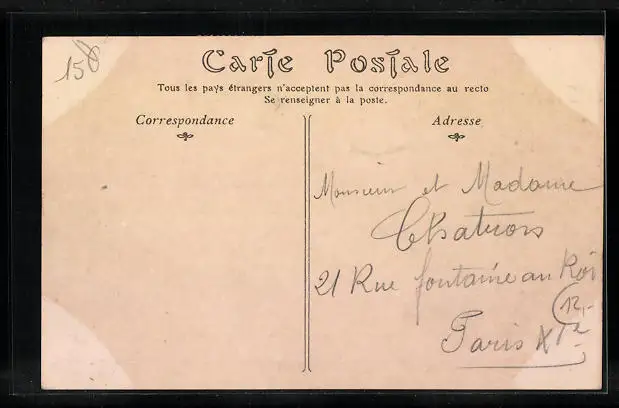 158
Carte Postale
Tous les pays étrangers n'acceptent pas la correspondance au recto
Se renseigner à la poste.
Correspondance
Adresse
Monsieur et Madame
Chatrons
21 Rue fontaine au Roi
12,-
Paris XIe